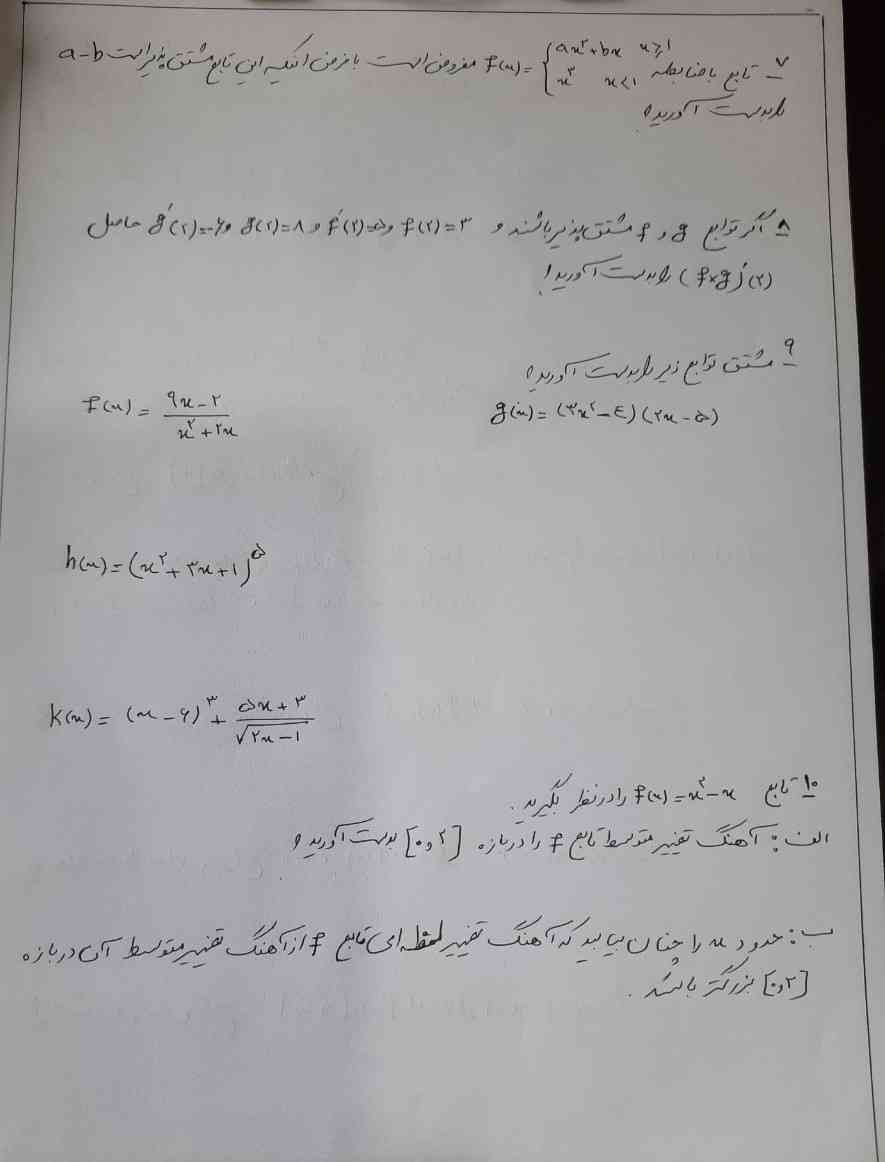 ۷- تابع با ضابطه f(x) = { ax² + bx x ≥ 1 ; x³ x < 1 مفروض است با فرض آنکه این تابع مشتق پذیر است a-b
را بدست آورید؟
۸ اگر توابع g و f مشتق پذیر باشند و f(۲)=۳ و f'(۲)=۵ و g(۲)=۸ و g'(۲)=-۶ حاصل
(f×g)'(۲) را بدست آورید!
۹- مشتق توابع زیر را بدست آورید؟
g(x) = (۳x² - ٤)(۲x - ۵)
f(x) = (۹x - ۲) / (x² + ۲x)
h(x) = (x² + ۳x + ۱)⁵
k(x) = (x - ۶)³ + (۵x + ۳) / √(۲x - ۱)
۱۰ تابع f(x) = x² - x را در نظر بگیرید.
الف: آهنگ تغییر متوسط تابع f را در بازه [۰,۲] بدست آورید؟
ب: حدود x را چنان بیابید که آهنگ تغییر لحظه ای تابع f از آهنگ تغییر متوسط آن در بازه
[۰,۲] بزرگتر باشد.